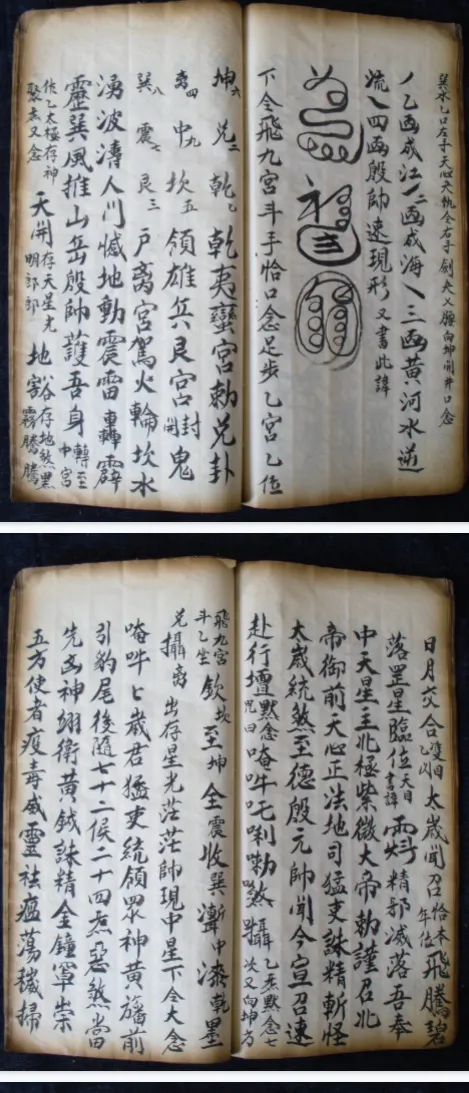 巽水乙口左手天心夾 仝右手劍夾乂腰向坤開井口念
丿乙画成江丿二画成海乀三画黄河水逆
流乀四画殷帥速現形 又書此諱
下令飛九宮斗手恰口念足步乙宮乙位
坤六 兑二 乾乙 乾夷蠻宮勅兑卦
离四 中九 坎五 領雄兵艮宮封開鬼
巽八 震七 艮三 户离宮駕火輪坎水
湧波濤人门憾地動震雷轟霹
靂巽風推山岳殷帥護吾身 轉至中宮
作乙太極存神聚炁又念 天開 存天星光明郎郎 地 存地煞黑霧騰騰
日月交合 雙目乙閃 太歲聞召 恰本年位 飛騰碧
落罡星臨位 天目書諱 精邪滅落吾奉
中天星主北極紫微大帝勅謹召北
帝御前天心正法地司猛吏誅精斬怪
太歲統煞至德殷元帥聞今宣召速
赴行壇 默念咒曰 唵吽吒唎嘞煞攝 乙炁默念七次又向坤方
飛九宮斗乙坐 欽坎至坤全震收巽漸中漆乾罡
兑攝离 出存星光茫茫帥現中星下令大念
唵吽匕歲君猛吏統領眾神黄旛前
引豹尾後隨七十二候二十四炁惡煞當
先凶神翊衛黄鉞誅精金鐘寧崇
五方使者疫毒威靈祛瘟蕩穢掃